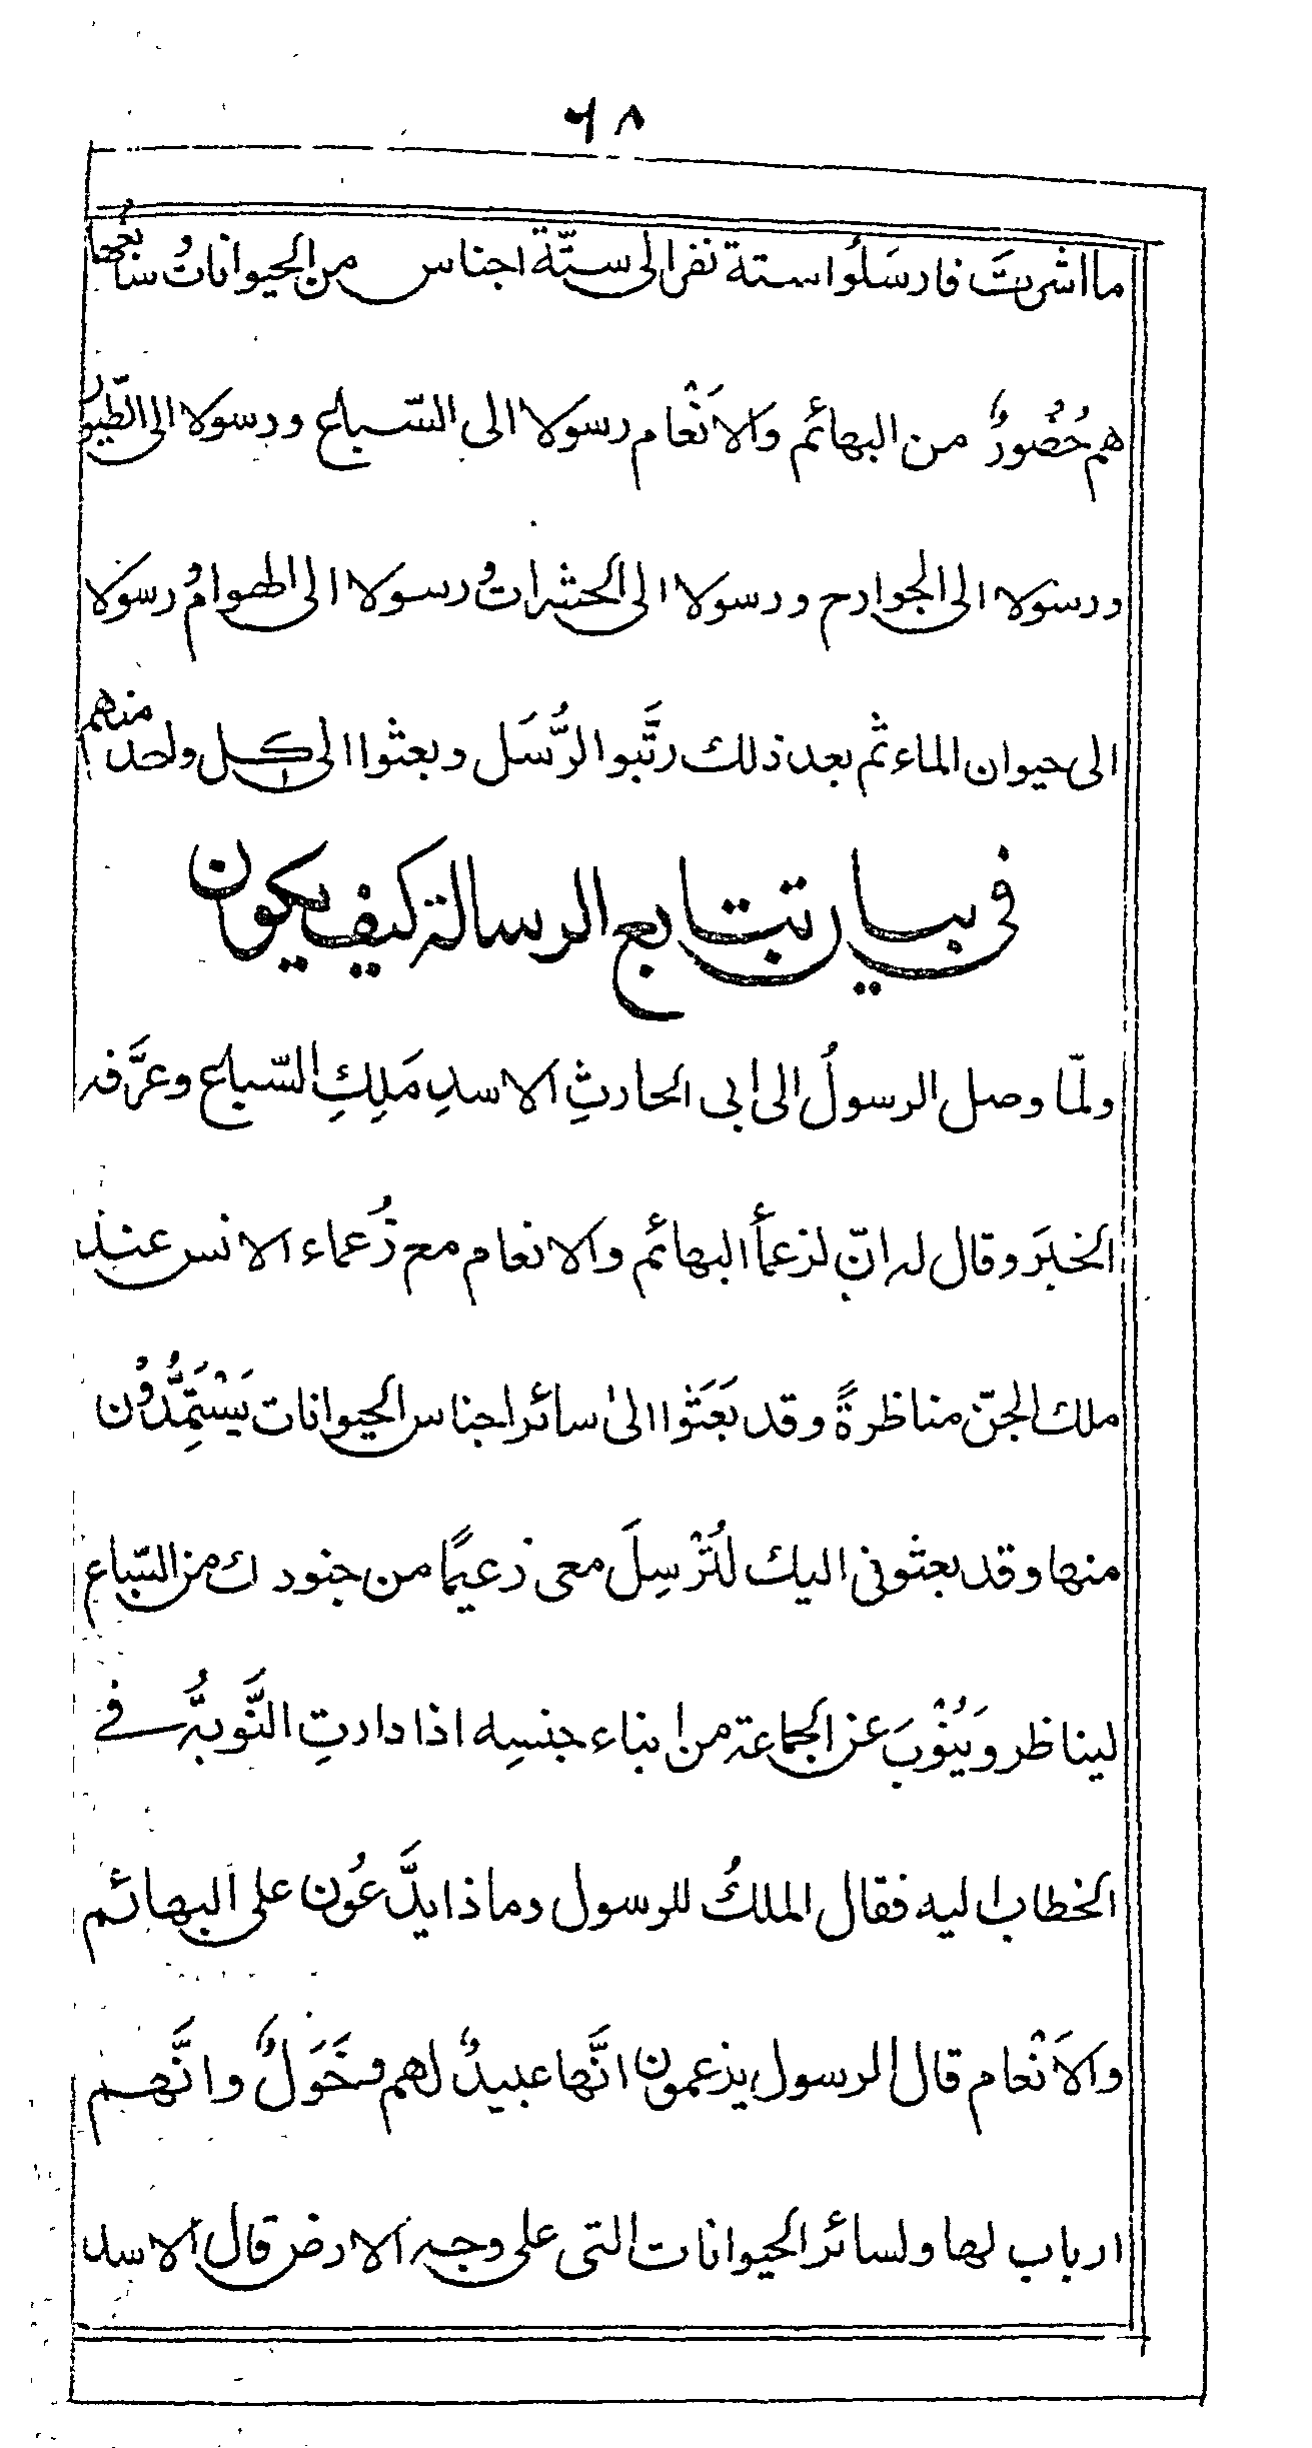 ٦٨
ما اشرتَ فارسَلُوا ستة نفر الى ستّة اجناس من الحيوانات وسابعها
هم حُضُورٌ من البهائم والاَنْعام رسولا الى السّباع ورسولا الى الطّيور
ورسولا الى الجوارح ورسولا الى الحشرات ورسولا الى الهوام ورسولا
الى حيوان الماء ثم بعد ذلك رتَّبوا الرُّسَل وبعثوا الى كل واحد منهم
فى بيان تتابع الرسالة كيف يكون
ولمّا وصل الرسولُ الى ابى الحارثِ الاسدِ مَلِكِ السّباع وعرَّفه
الخبرَ وقال له انّ لزعمأ البهائم والانعام مع زُعماء الانس عند
ملك الجنّ مناظرةً وقد بَعَثَوا الىٰ سائر اجناس الحيوانات يَسْتَمِدُّوْن
منها وقد بعثونى اليك لتُرْسِلَ معى زعيمًا من جنودك من السّباع
ليناظر وَيَنُوْبَ عن الجماعة من ابناء جنسِه اذا دارتِ النَّوبةُ فے
الخطاب اليه فقال الملكُ للرسول وماذا يدَّعُون على البهائم
والاَنْعام قال الرسول يزعمون انَّها عبيدٌ لهم وخَوَلٌ وانَّهم
ارباب لها ولسائر الحيوانات التى على وجه الارض قال الاسد